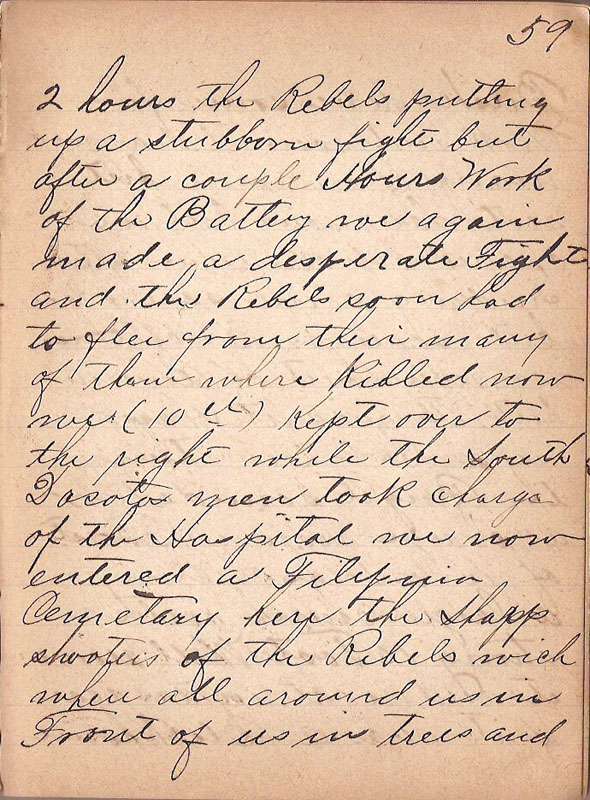 59
2 hours the Rebels putting
up a stubborn fight but
after a couple Hours Work
of the Battery we again
made a desperate Fight
and the Rebels soon had
to flee from their many
of them where Killed now
we (10th) Kept over to
the right while the South
Dacota men took charge
of the Hospital we now
entered a Filipino
Cemetary here the Sharp
shooters of the Rebels wich
where all around us in
Front of us in trees and